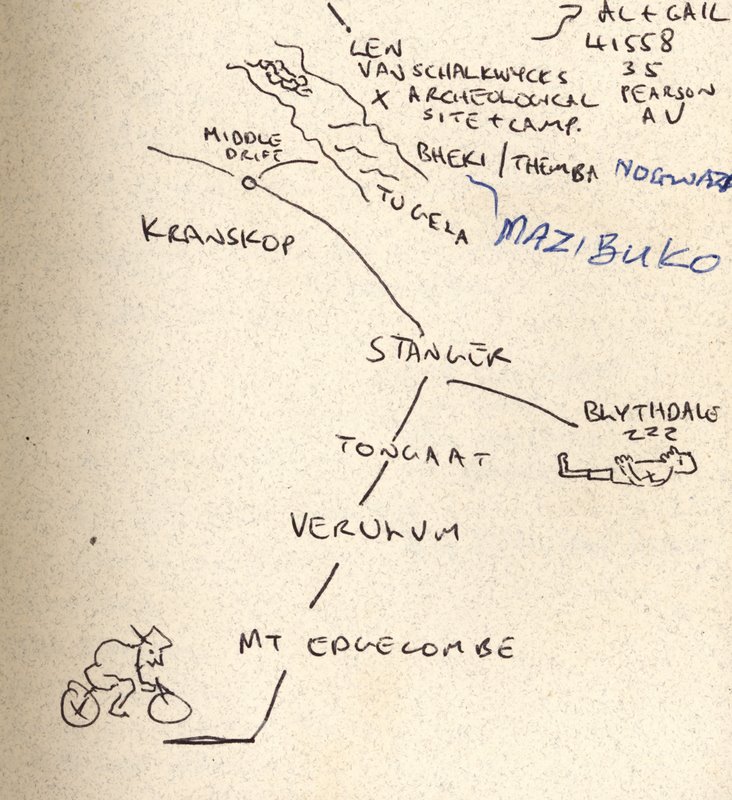 AL + GAIL
41558
35
PEARSON
AV
LEN
VAN SCHALKWYCKS
X ARCHEOLOGICAL
SITE + CAMP.
MIDDLE
DRIFT
BHEKI / THEMBA
MAZIBUKO
TUGELA
KRANSKOP
STANGER
BLYTHDALE
ZZZ
TONGAAT
VERULUM
MT EDGECOMBE